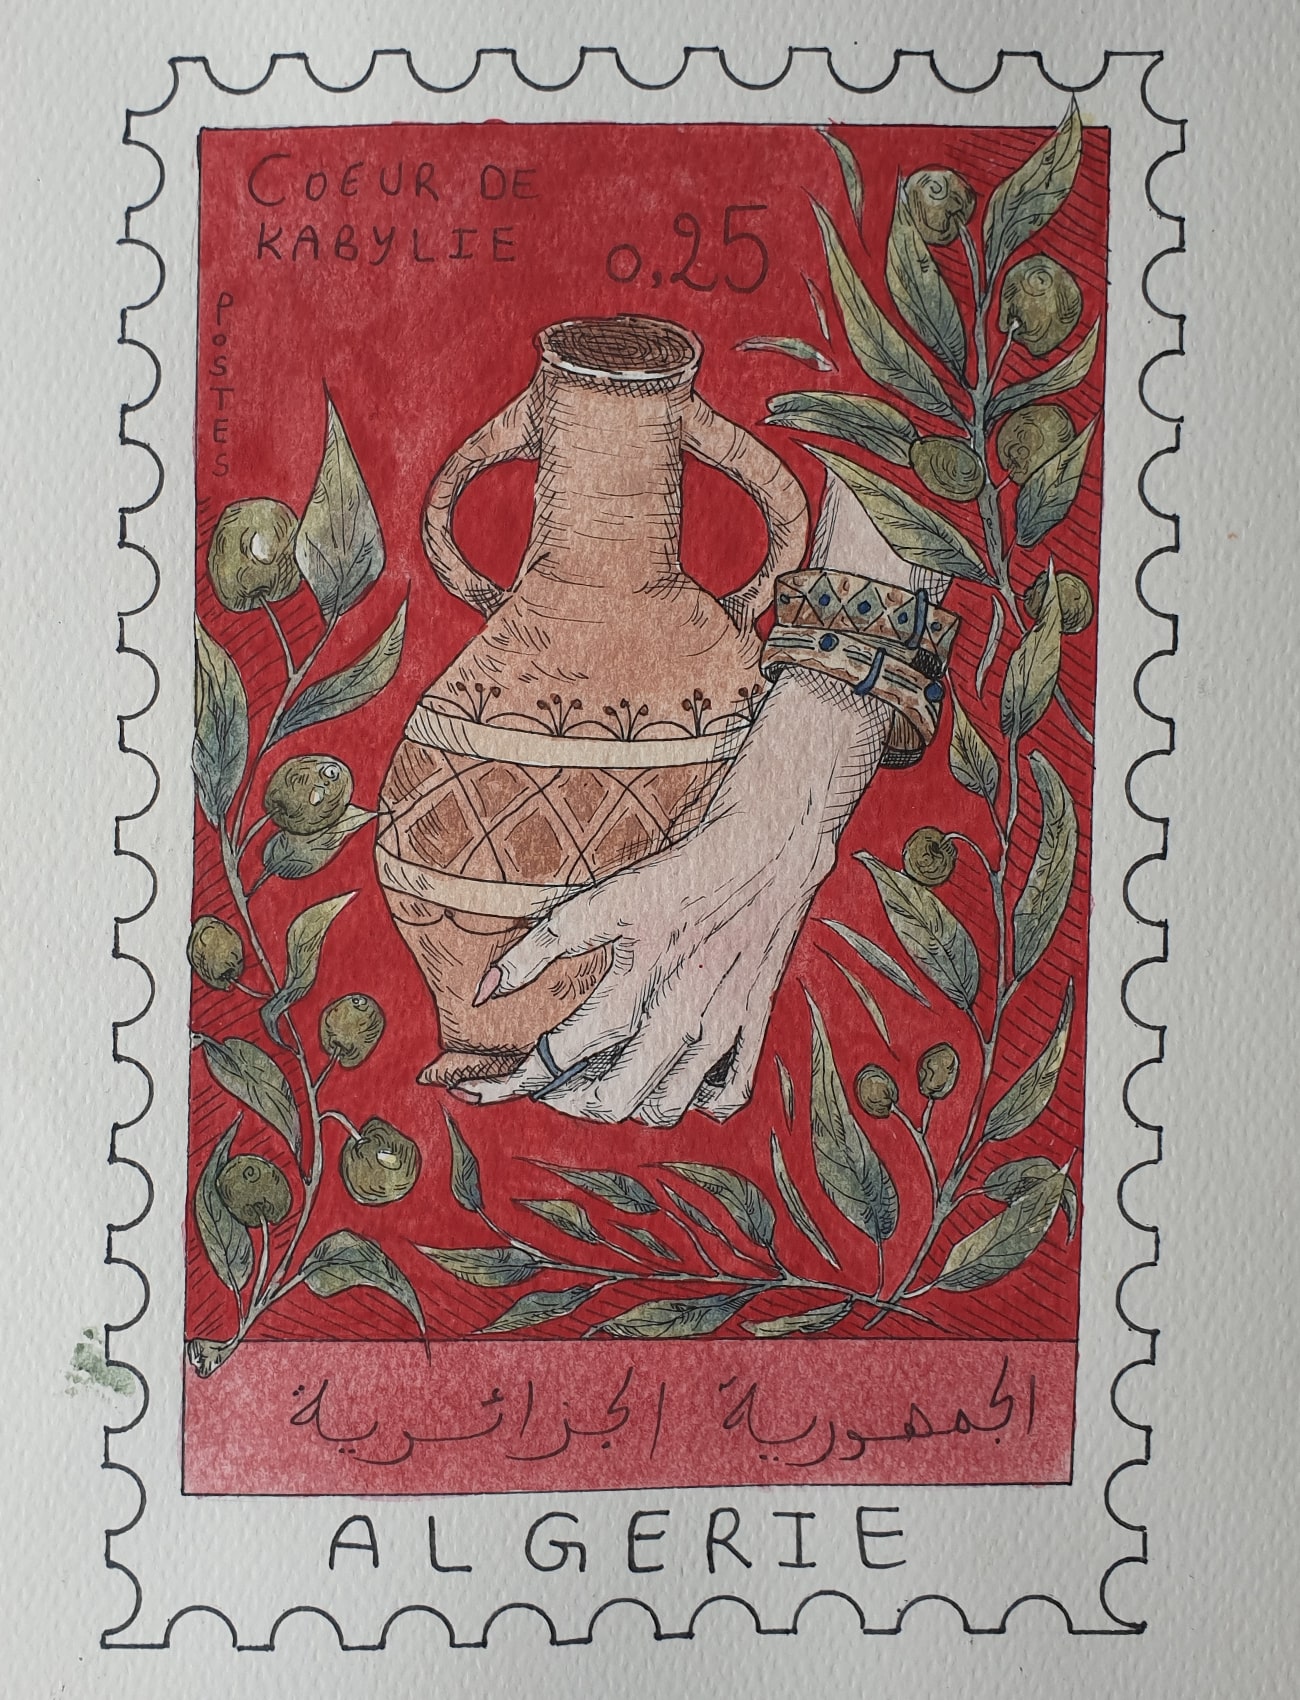 COEUR DE
KABYLIE
0,25
POSTES
الجمهورية الجزائرية
ALGERIE